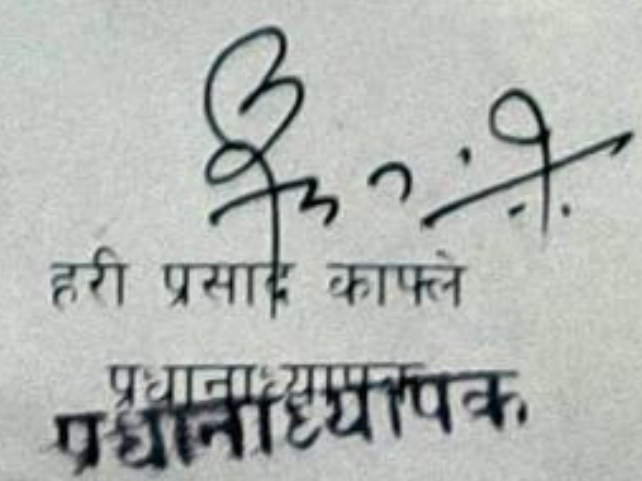 हरी प्रसाद काफ्ले
प्रधानाध्यापक
प्रधानाध्यापक